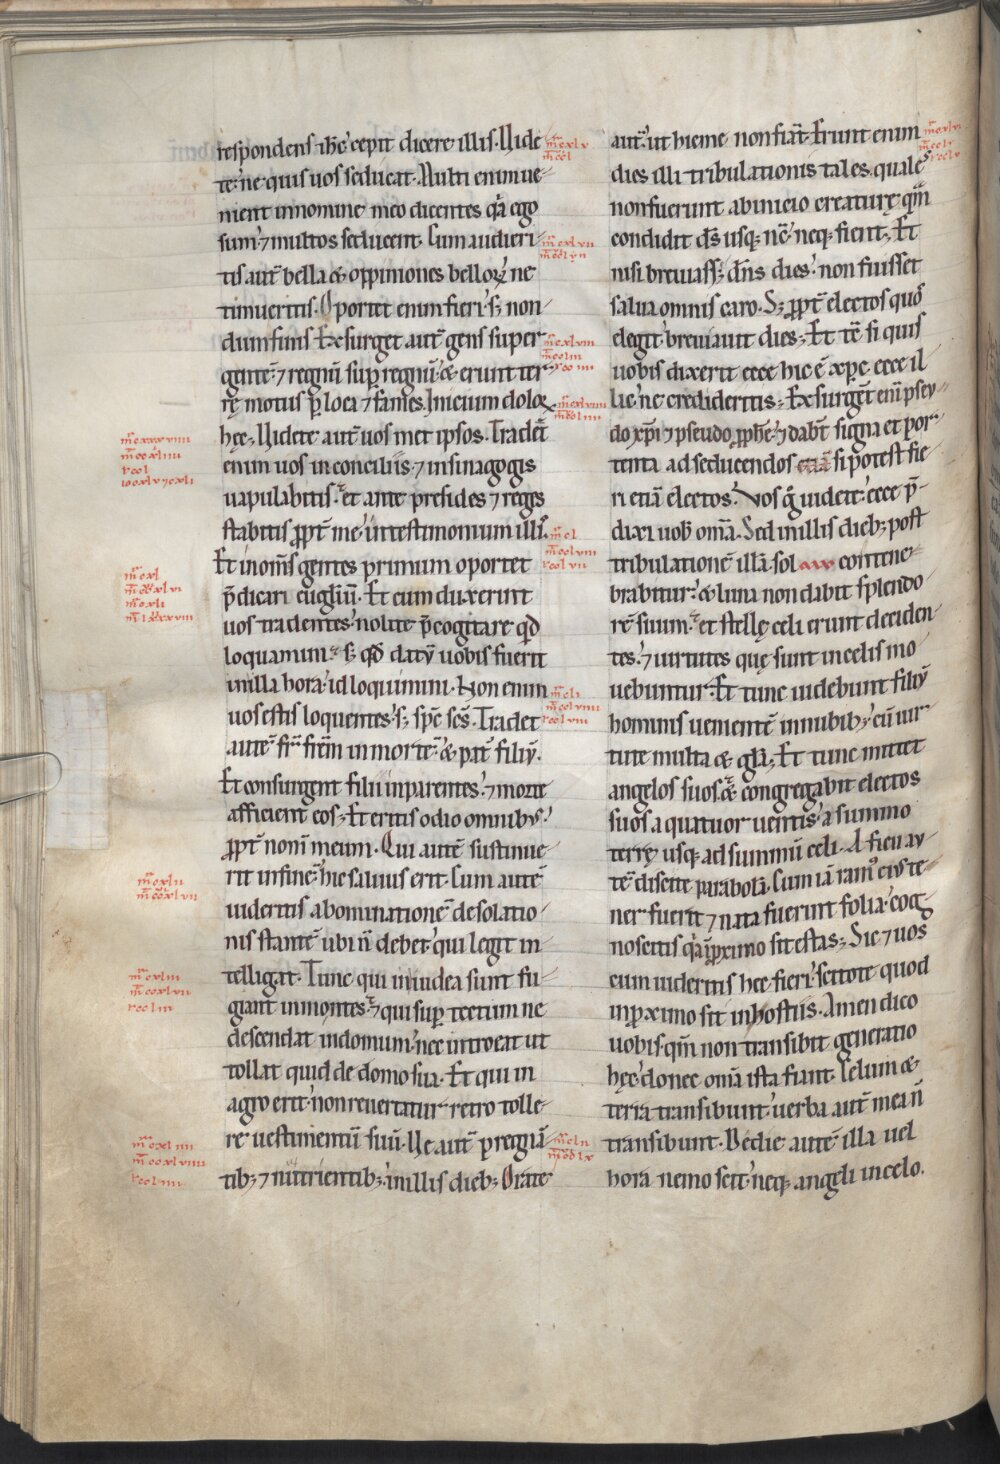 respondens ih̅c cepit dicere illis. Uide
te ne quis uos seducat. Multi enim ue-
nient in nomine meo dicentes q̅a ego
sum ⁊ multos seducent. Cum audieri-
tis aut̅ bella & oppiniones belloꝝ ne
timueritis. Oportet enim fieri s; non-
dum finis. Exsurget aut̅ gens super
gente̅ ⁊ regnu̅ sup regnu̅ & erunt ter-
rę motus p loca ⁊ fames. Inicium doloꝝ
hęc. Uidete aut̅ uos met ipsos. Tradet̅
enim uos in conciliis ⁊ in sinagogis
uapulabitis et ante presides ⁊ reges
stabitis ꝓpt̅ me in testimonium illis.
Et in om̅s gentes primum oportet
p̅dicari eu̅gliu̅. Et cum duxerint
uos tradentes nolite p̅cogitare qd̅
loquamini s; qd̅ datu̅ uobis fuerit
in illa hora id loquimini. Non enim
uos estis loquentes s; sp̅c sc̅s. Tradet
aute̅ fr̅ fr̅em in morte̅ & pat̅ filiu̅.
Et consurgent filii in parentes ⁊ morte
afficient eos. Et eritis odio omnibus
ꝓpt̅ nom̅ meum. Qui aute̅ sustinue-
rit in fine̅ hic saluus erit. Cum aute̅
uideritis abominatione̅ desolatio-
nis stante̅ ubi n̅ debet qui legit in-
telligat. Tunc qui in iudea sunt fu-
giant in montes ⁊ qui sup tectum ne
descendat in domum nec introeat ut
tollat quid de domo sua. Et qui in
agro erit non reuertatur retro tolle-
re uestimentu̅ suu̅. Ue aut̅ pregna̅
tib; ⁊ nutrientib; in illis dieb; Orate
aut̅ ut hieme non fia̅t. Erunt enim
dies illi tribulationis tales quales
non fuerunt ab inicio creaturę qm̅
condidit d̅s usq; nc̅ neq; fient. Et
nisi breuiass; dn̅s dies non fuisset
salua omnis caro. S; ꝓpt̅ electos quos
elegit breuiauit dies. Et tc̅ si quis
uobis dixerit ecce hic e̅ xp̅c ecce il-
lic ne credideritis. Exsurge̅t eni̅ psey-
do xp̅i ⁊ pseudo ꝓph̅e ⁊ dab̅t signa et por-
tenta ad seducendos etia̅ si potest fie-
ri etia̅ electos. Vos g̊ uidete ecce p̅-
dixi uob̅ om̅a. Sed in illis dieb; post
tribulatione̅ illa̅ sol contene-
brabitur & luna non dabit splendo-
re̅ suum et stellę celi erunt deciden-
tes ⁊ uirtutes quę sunt in celis mo-
uebuntur. Et tunc uidebunt filiu̅
hominis ueniente̅ in nubib; cu̅ uir-
tute multa & gl̅a. Et tunc mittet
angelos suos & congregabit electos
suos a quatuor uentis a summo
terrę usq; ad summu̅ celi. A ficu au-
te̅ discite parabola̅. Cum ia̅ ram9 eius te-
ner fuerit ⁊ nata fuerint folia cog-
noscitis q̅a in ꝓximo sit estas. Sic ⁊ uos
cum uideritis hec fieri scitote quod
in ꝓximo sit in hostiis. Amen dico
uobis qm̅ non transibit generatio
hęc donec om̅a ista fiant. Celum &
terra transibunt uerba aut̅ mea n̅
transibunt. De die aute̅ illa uel
hora nemo scit neq; angeli in celo.